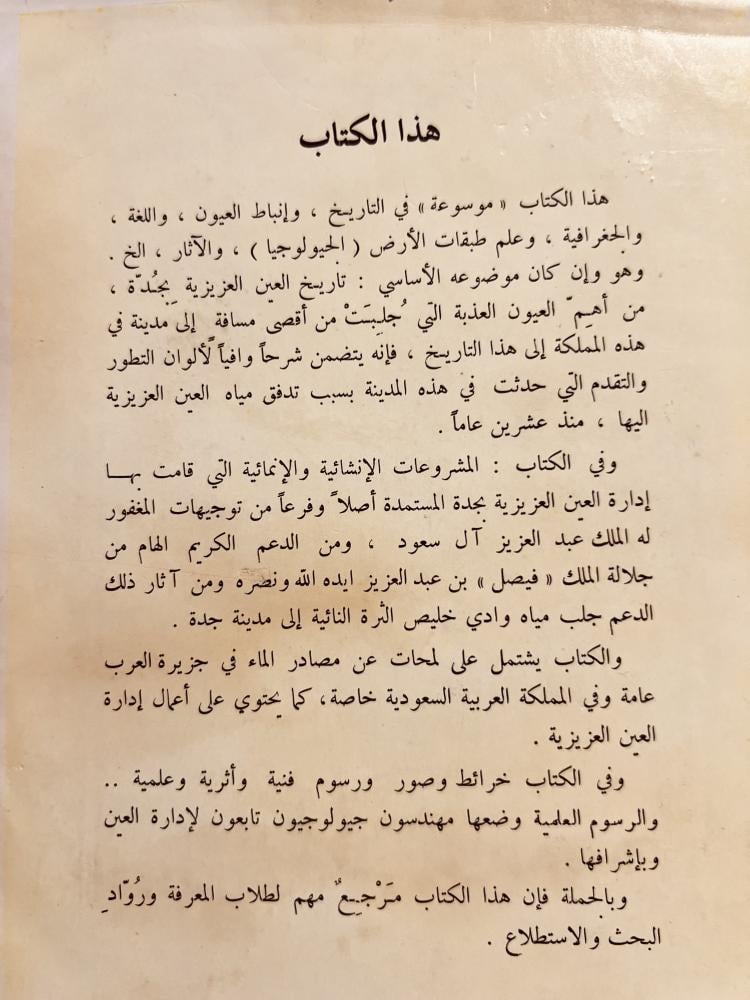 هذا الكتاب
هذا الكتاب « موسوعة » في التاريخ ، وإنباط العيون ، واللغة ،
والجغرافية ، وعلم طبقات الأرض ( الجيولوجيا ) ، والآثار ، الخ .
وهو وإن كان موضوعه الأساسي : تاريخ العين العزيزية بِجُدّة ،
من أهمّ العيون العذبة التي جُلِبَتْ من أقصى مسافة إلى مدينة في
هذه المملكة إلى هذا التاريخ ، فإنه يتضمن شرحاً وافياً لألوان التطور
والتقدم التي حدثت في هذه المدينة بسبب تدفق مياه العين العزيزية
اليها ، منذ عشرين عاماً .
وفي الكتاب : المشروعات الإنشائية والإنمائية التي قامت بهـا
إدارة العين العزيزية بجدة المستمدة أصلاً وفرعاً من توجيهات المغفور
له الملك عبد العزيز آل سعود ، ومن الدعم الكريم الهام من
جلالة الملك « فيصل » بن عبد العزيز ايده الله ونصره ومن آثار ذلك
الدعم جلب مياه وادي خليص الثرة النائية إلى مدينة جدة .
والكتاب يشتمل على لمحات عن مصادر الماء في جزيرة العرب
عامة وفي المملكة العربية السعودية خاصة ، كما يحتوي على أعمال إدارة
العين العزيزية .
وفي الكتاب خرائط وصور ورسوم فنية وأثرية وعلمية ..
والرسوم العلمية وضعها مهندسون جيولوجيون تابعون لإدارة العين
وبإشرافها .
وبالجملة فإن هذا الكتاب مَرْجِعٌ مهم لطلاب المعرفة ورُوّادِ
البحث والاستطلاع .